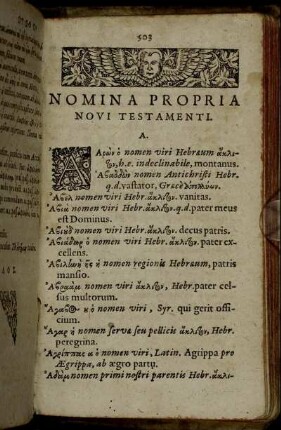 503
NOMINA PROPRIA
NOVI TESTAMENTI.
A.
Ααρὼν ὁ nomen viri Hebræum ἄκλι-
τον, h.e. indeclinabile, montanus.
Ἀβαδδὼν nomen Antichristi Hebr.
q.d. vastator, Græcè ἀπολλύων.
Ἄβελ nomen viri Hebr. ἄκλιτον. vanitas.
Ἀβιὰ nomen viri Hebr. ἄκλιτον. q.d. pater meus
est Dominus.
Ἀβιοὺδ nomen viri Hebr. ἄκλιτον. decus patris.
Ἀβιάθαρ ὁ nomen viri Hebr. ἄκλιτον. pater ex-
cellens.
Ἀβιληνὴ ῆς ἡ nomen regionis Hebræum, patris
mansio.
Ἀβραὰμ nomen viri ἄκλιτον, Hebr. pater cel-
sus multorum.
nomen viri, Syr. qui gerit offi-
cium.
Ἄγαρ ἡ nomen servæ seu pellicis ἄκλιτον, Hebr.
peregrina.
Ἀγρίππας α ὁ nomen viri, Latin. Agrippa pro
Ægrippa, ab ægro partu.
Ἀδὰμ nomen primi nostri parentis Hebr. ἄκλι-